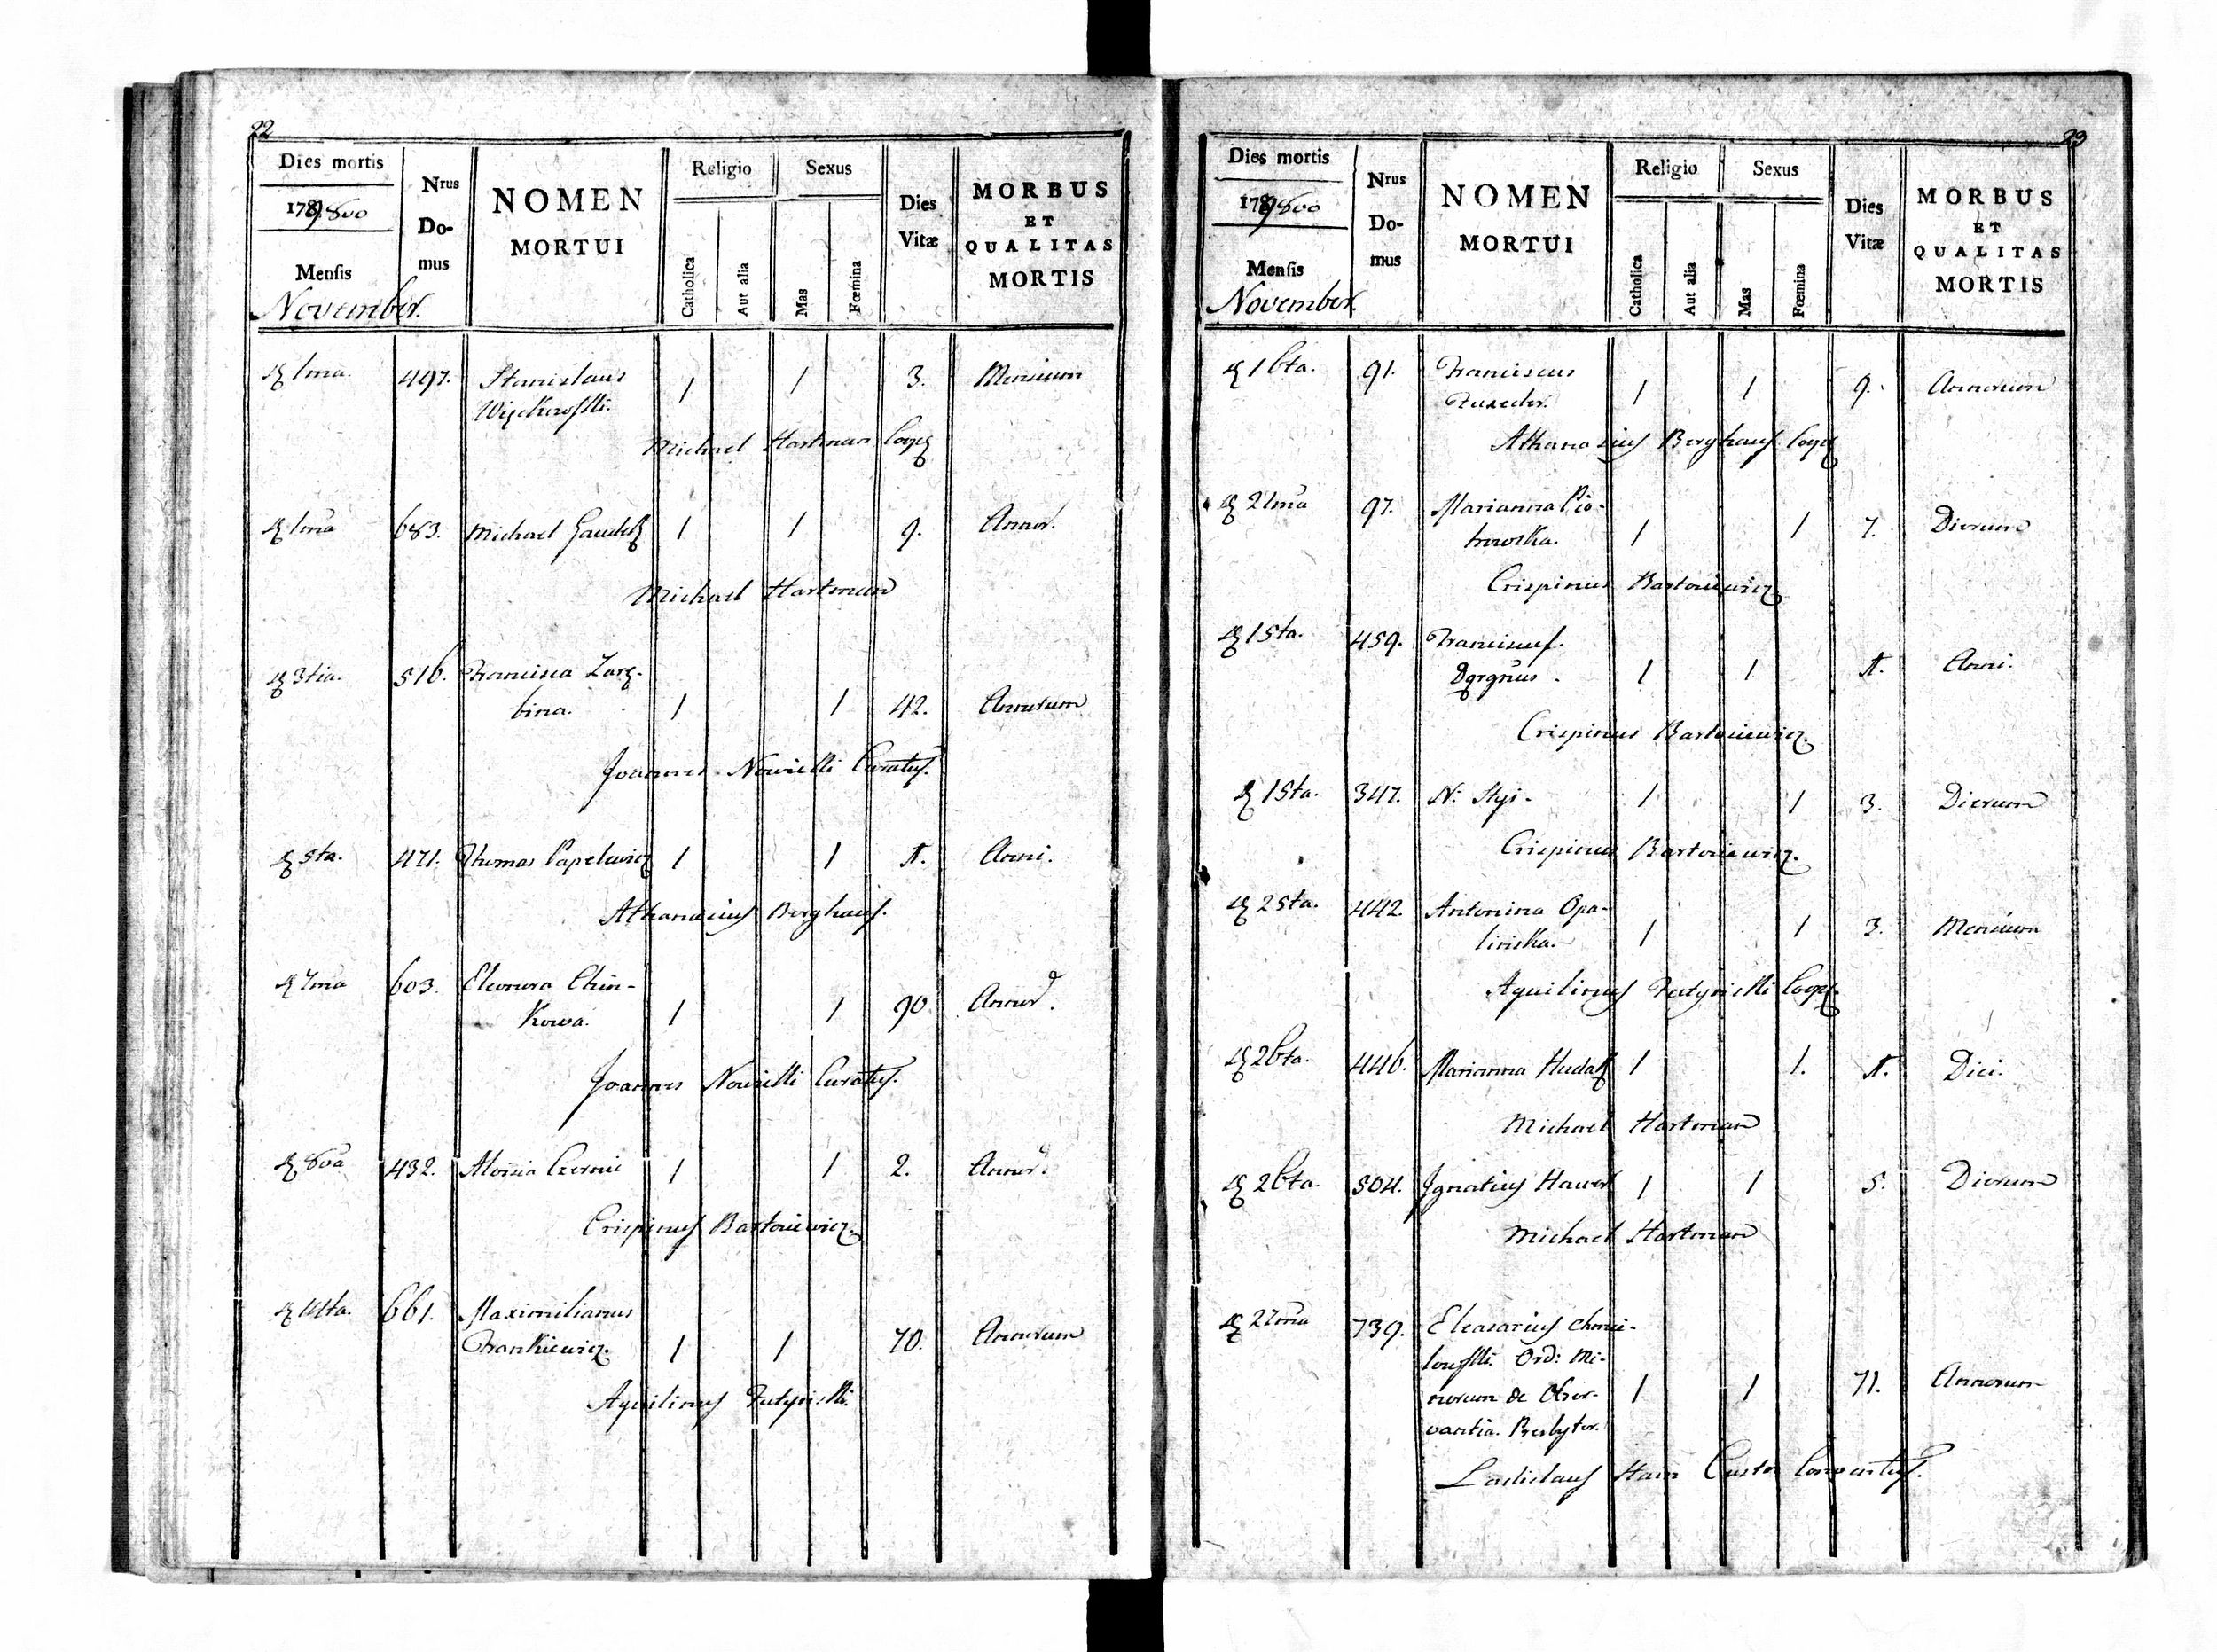 22
Dies mortis
1789 800
Mensis
November.
Nrus
Do-
mus
NOMEN
MORTUI
Religio
Catholica
Aut alia
Sexus
Mas
Fœmina
Dies
Vitæ
MORBUS
ET
QUALITAS
MORTIS
1ma. 497. Stanislaus 1 1 3. Mensium
Michael Hartman Coop
1ma 683. Michael 1 1 9. Annor.
Michael Hartman
3tia. 516. Francisca Zarę-
bina. 1 1 42. Annorum
Joannes Nowicki Curatus.
5ta. 471. Thomas Papelewicz 1 1 1. Anni.
Athanasius Berghaus.
7ma 603. Eleonora Chin-
kowa. 1 1 90 Annor.
Joannes Nowicki Curatus.
8va 432. Aloisia 1 1 2. Annor.
Crispinus Bartoniewicz.
14ta. 661. Maximilianus
Frankiewicz. 1 1 70. Annorum
Aquilinus
23
Dies mortis
1789 800
Mensis
November.
Nrus
Do-
mus
NOMEN
MORTUI
Religio
Catholica
Aut alia
Sexus
Mas
Fœmina
Dies
Vitæ
MORBUS
ET
QUALITAS
MORTIS
16ta. 91. Franciscus
1 1 9. Annorum
Athanasius Berghaus Coop
21ma 97. Marianna Pio-
trowska. 1 1 7. Dierum
Crispinus Bartoniewicz
15ta. 459. Franciscus.
1 1 1. Anni.
Crispinus Bartoniewicz.
15ta. 347. N: 1 1 3. Dierum
Crispinus Bartoniewicz.
25ta. 442. Antonina Opa-
linska. 1 1 3. Mensium
Aquilinus Coop.
26ta. 446. Marianna 1 1. 1. Diei.
Michael Hartman
26ta. 504. Ignatius Hawer 1 1 5. Dierum
Michael Hartman
27ma 739. Eleasarius Chmie-
lowski. Ord: Mi-
norum de Obser- 1 1 71. Annorum
vantia. Presbyter.
Ladislaus Custos Conventus.